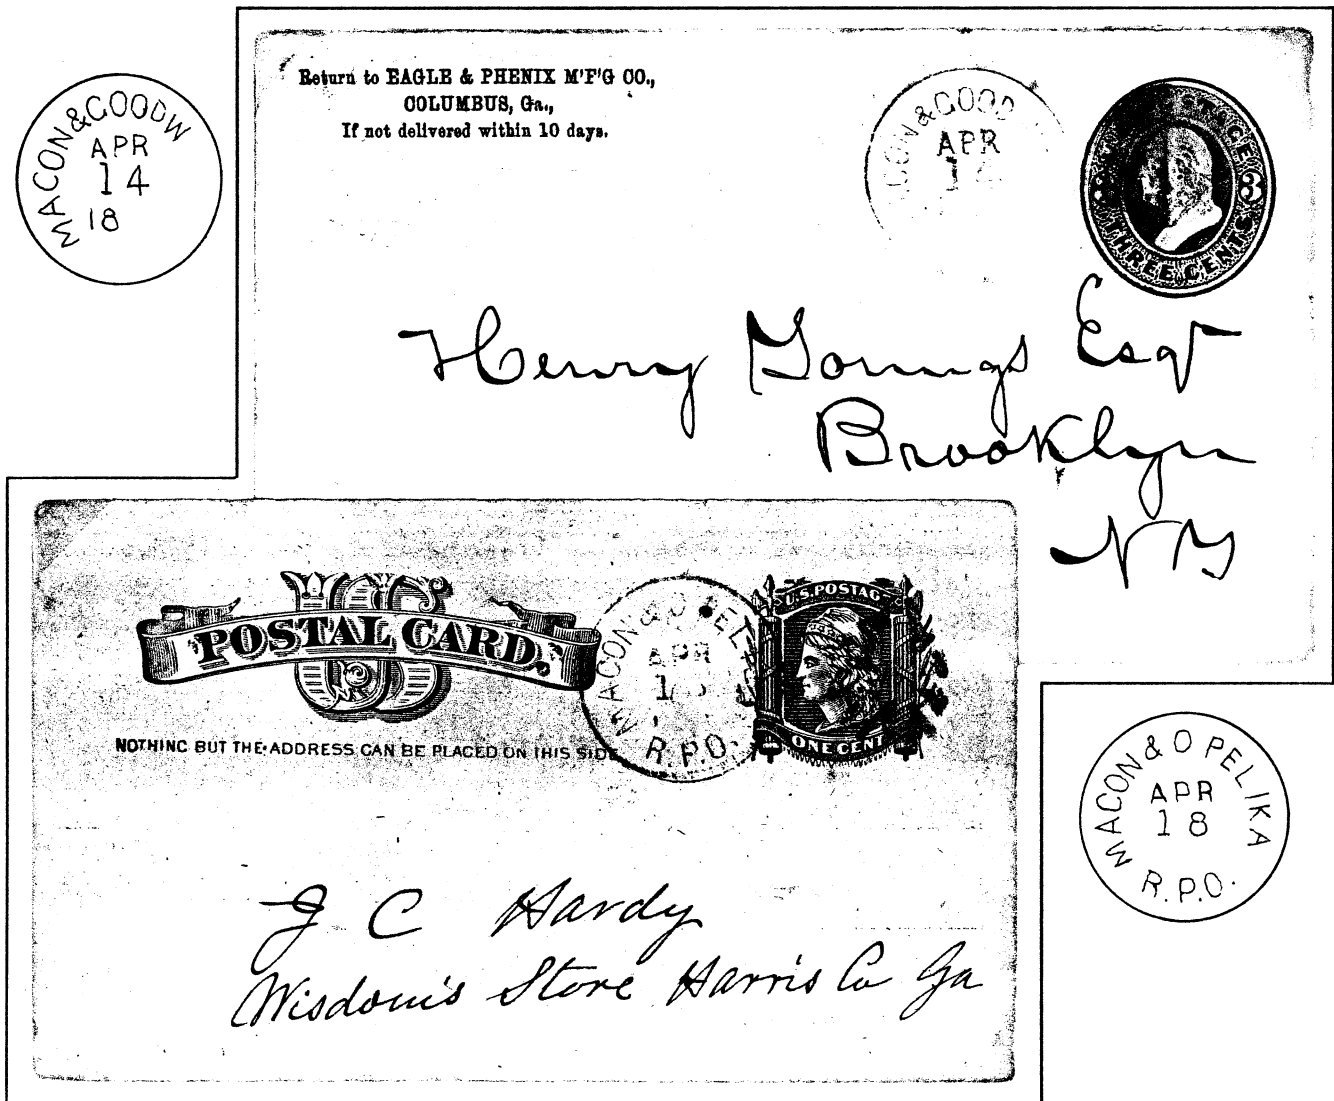 MACON & GOODW
APR
14
18
Return to EAGLE & PHENIX M'F'G CO.,
COLUMBUS, Ga.,
If not delivered within 10 days.
CON & GOOD
APR
THREE CENTS
3
Henry Youngs Esqr
Brooklyn
N Y
U S
POSTAL CARD.
NOTHING BUT THE ADDRESS CAN BE PLACED ON THIS SIDE
MACON & O PEL
APR
R.P.O.
U.S. POSTAG
ONE CENT
J C Hardy
Wisdom's Store Harris Co Ga
MACON & OPELIKA
APR
18
R.P.O.